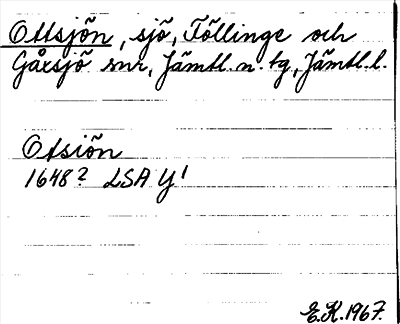 Ottsjön, sjö, Föllinge och
Gåxsjö snr, Jämtl. n. tg, Jämtl. l.
Otsiön
1648? LSA Y1
E.K. 1967.